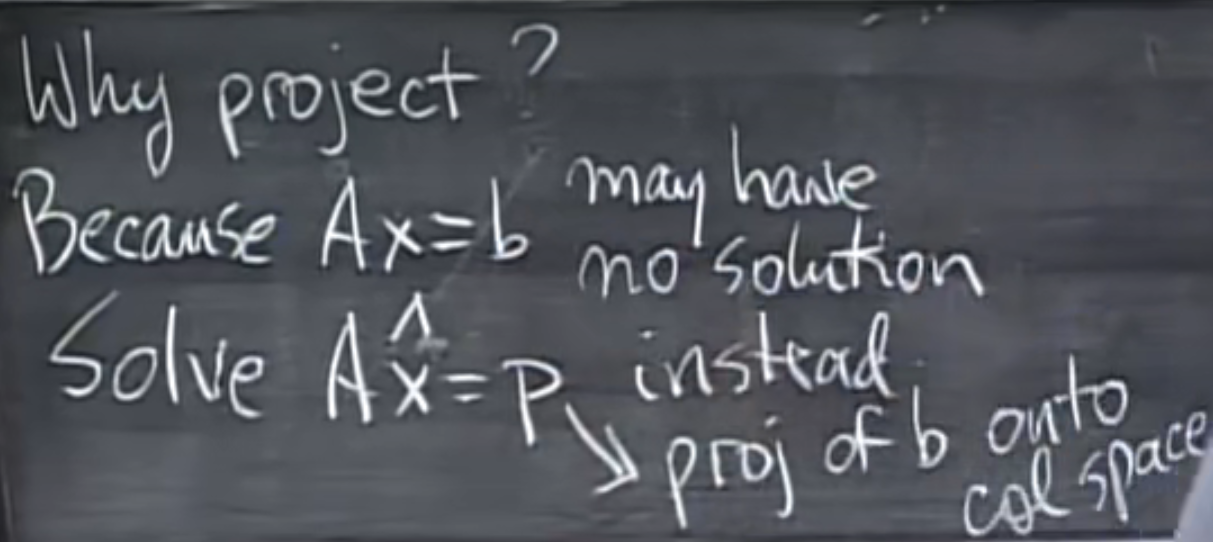 Why project?
Because Ax=b may have
no solution
Solve Ax̂=p instead
proj of b onto
col space